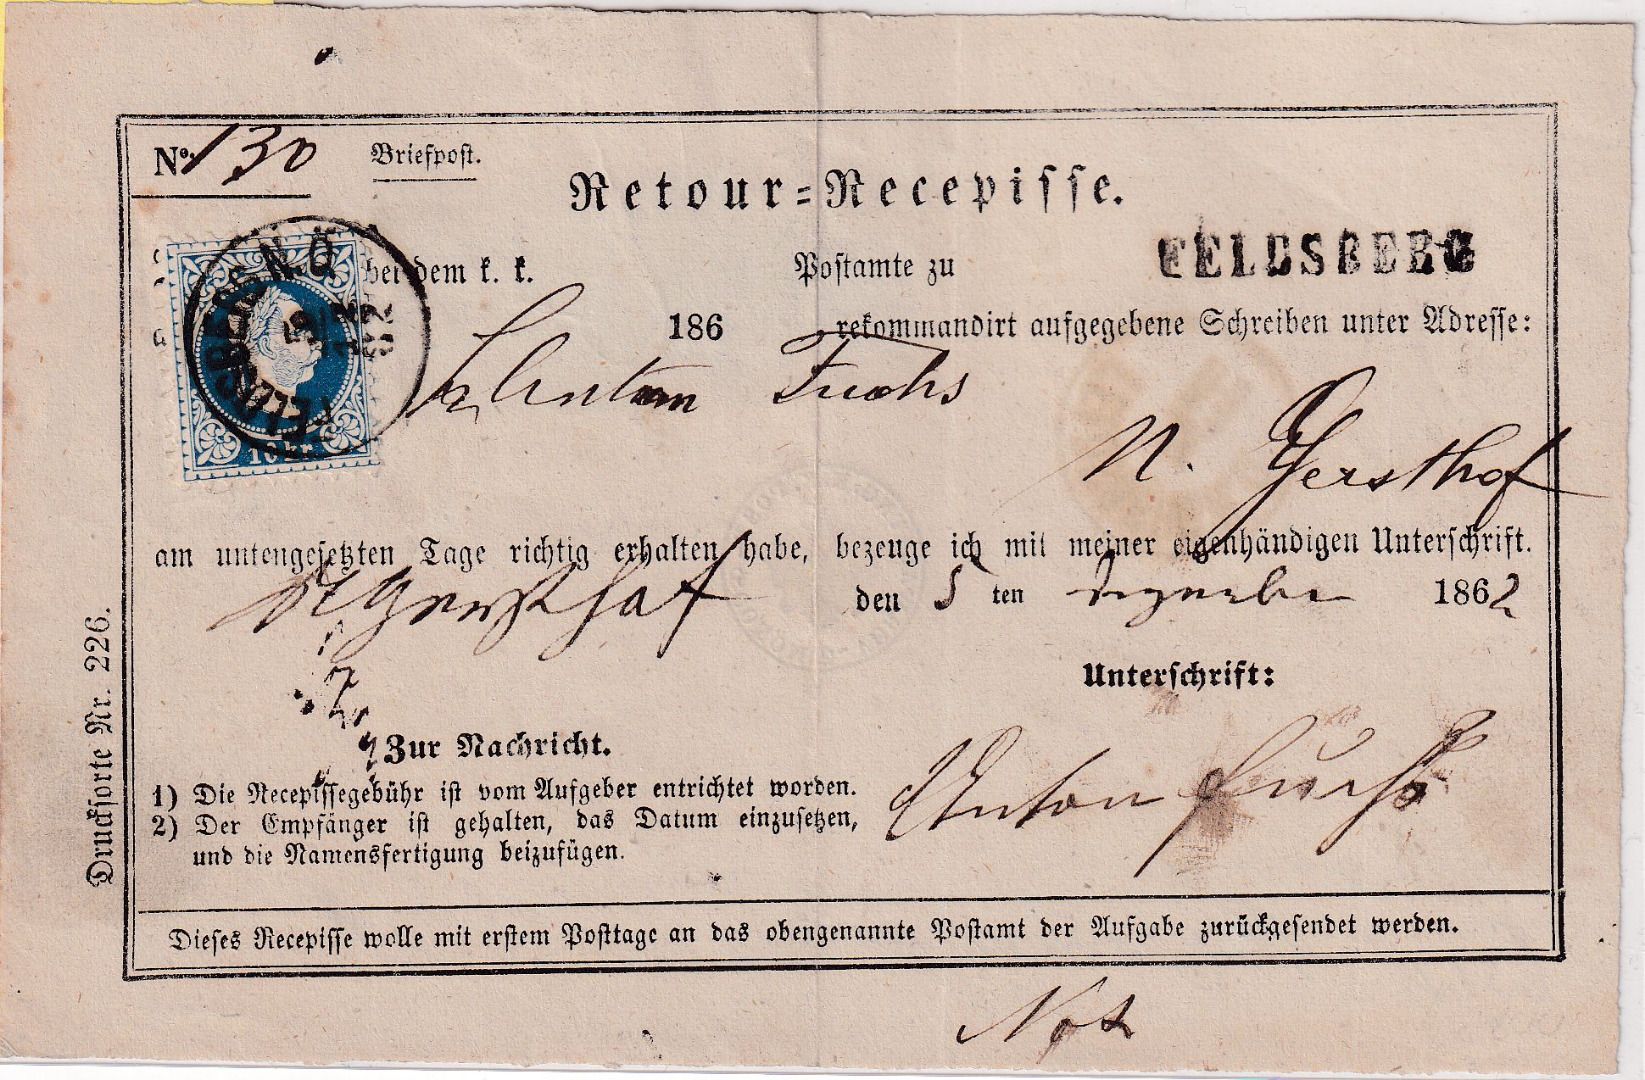 No. 130 Briefpost.
Retour-Recepisse.
FELDSBERG N.Ö.
10 kr.
bei dem k. k. Postamte zu FELDSBERG
186 rekommandirt aufgegebene Schreiben unter Adresse:
Anton Fuchs
N. Gersthof
am untengesetzten Tage richtig erhalten habe, bezeuge ich mit meiner eigenhändigen Unterschrift.
Gersthof den 5 ten Dezember 1862
Unterschrift:
Anton Fuchs
Zur Nachricht.
1) Die Recepissegebühr ist vom Aufgeber entrichtet worden.
2) Der Empfänger ist gehalten, das Datum einzusetzen,
und die Namensfertigung beizufügen.
Dieses Recepisse wolle mit erstem Posttage an das obengenannte Postamt der Aufgabe zurückgesendet werden.
Drucksorte Nr. 226.